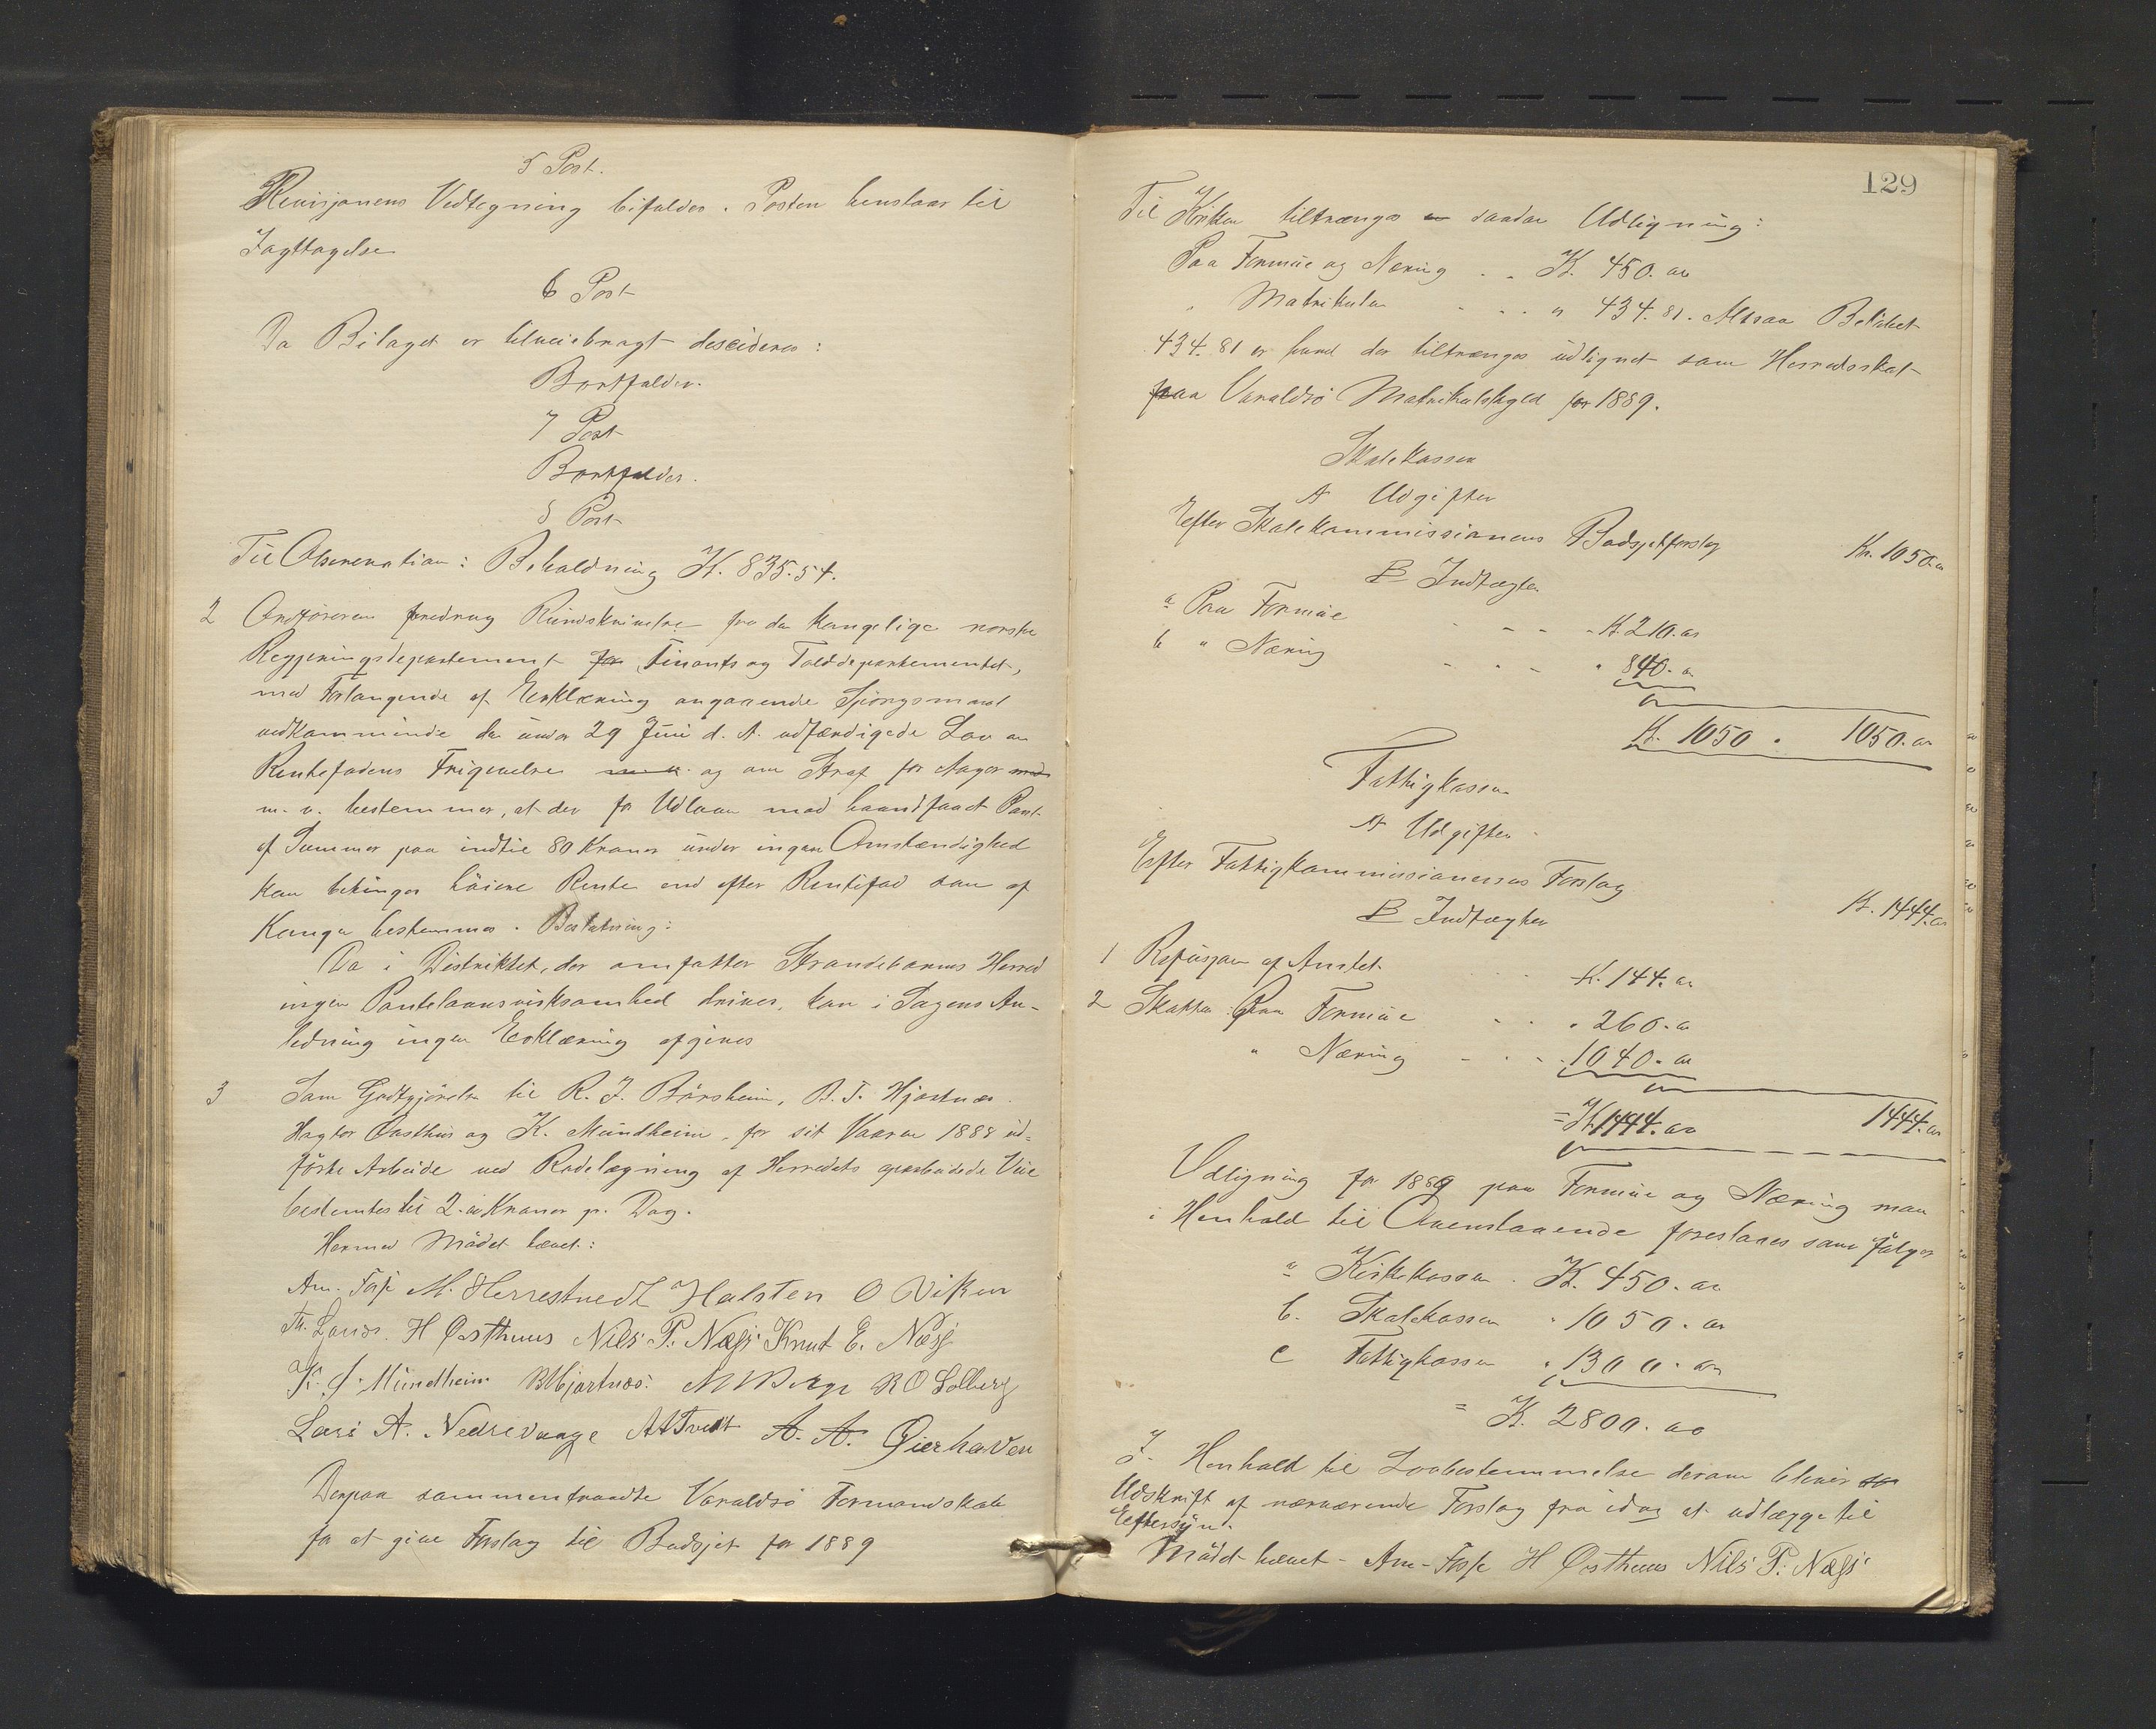 5 Post.
Revisjonens Vedtegning bifaldes. Posten henstaar til
Iagttagelse
6 Post
Da Bilaget er tilveiebragt desideres:
Bortfalder.
7 Post
Bortfalder.
8 Post
Til Observation: Beholdning K. 835.54.
2 Ordföreren foredrog Rundskrivelse fra det kongelige norske
Regjeringsdepartement for Finants og Tolddepartementet,
med Forlangende af Erklæring angaaende Spörgsmaal
vedkommende den under 29 Juni d. A. udfærdigede Lov om
Rentefodens Frigivelse og om Straf for Aager
m. v. bestemmer, at der for Udlaan mod haandfaaet Pant
af Summer paa indtil 80 Kroner under ingen Omstændighed
kan betinges höiere Rente end efter Rentefod som af
Kongen bestemmes. Beslutning:
Da i Distriktet, der omfatter Strandebarms Herred
ingen Pantelaansvirksomhed drives, kan i Sagens An-
ledning ingen Erklæring afgives
3 Som Godtgjörelse til R. J. Börsheim, B. T. Hjartnæs
Hagtor Østhus og K. Mundheim, for sit Vaaren 1888 ud-
förte Arbeide ved Rodelægning af Herredets oparbeidede Veie
bestemtes til 2.00 Kroner pr. Dag.
Hermed Mödet hævet:
Am. Fosse M. Herrestvedt Halsten O Viken
Th. Laurs. H Østhuus Nils P. Næss Knut E. Næss
K. J. Mundheim BHjartnæs: R O Solberg
Lars A. Nedrevaage A A Tveit A. A. Øierhavn
Derpaa sammentraadte Varaldsö Formandskab
for at give Forslag til Budsjet for 1889
129
Til Kirken tiltrænges saadan Udligning:
Paa Formue og Næring . . K. 450. 00
" Matrikulen . . . " 434.81. Altsaa Belöbet
434.81 er hvad der tiltrænges udlignet som Herredsskat
paa Varaldsö Matrikulskyld for 1889.
Skolekassen
A Udgifter
Efter Skolekommissionens Budsjetforslag Kr. 1050.00
B Indtægter
a Paa Formue - - - K. 210.00
b " Næring - - - " 840.00
K. 1050 " 1050.00
Fattigkassen
A Udgifter
Efter Fattigkommissionernes Forslag K. 1444.00
B Indtægter
1 Refusjon af Amtet K. 144.00
2 Skatten: Paa Formue . . " 260.00
" Næring - - - 1040.00
= K. 1444.00 1444.00
Udligning for 1889 paa Formue og Næring man
i Henhold til Ovenstaaende foreslaaes som fölger
a Kirkekassen . K. 450.00
b. Skolekassen " 1050.00
c Fattigkassen " 1300.00
= K. 2800.00
I Henhold til Lovbestemmelse derom bliver
Udskrift af nærværende Forslag fra idag at udlægge til
Eftersyn.
Mödet hævet - Am. Fosse H Østhuus Nils P. Næss